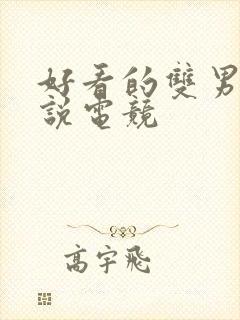 好看的雙男
說電競
高宇飛